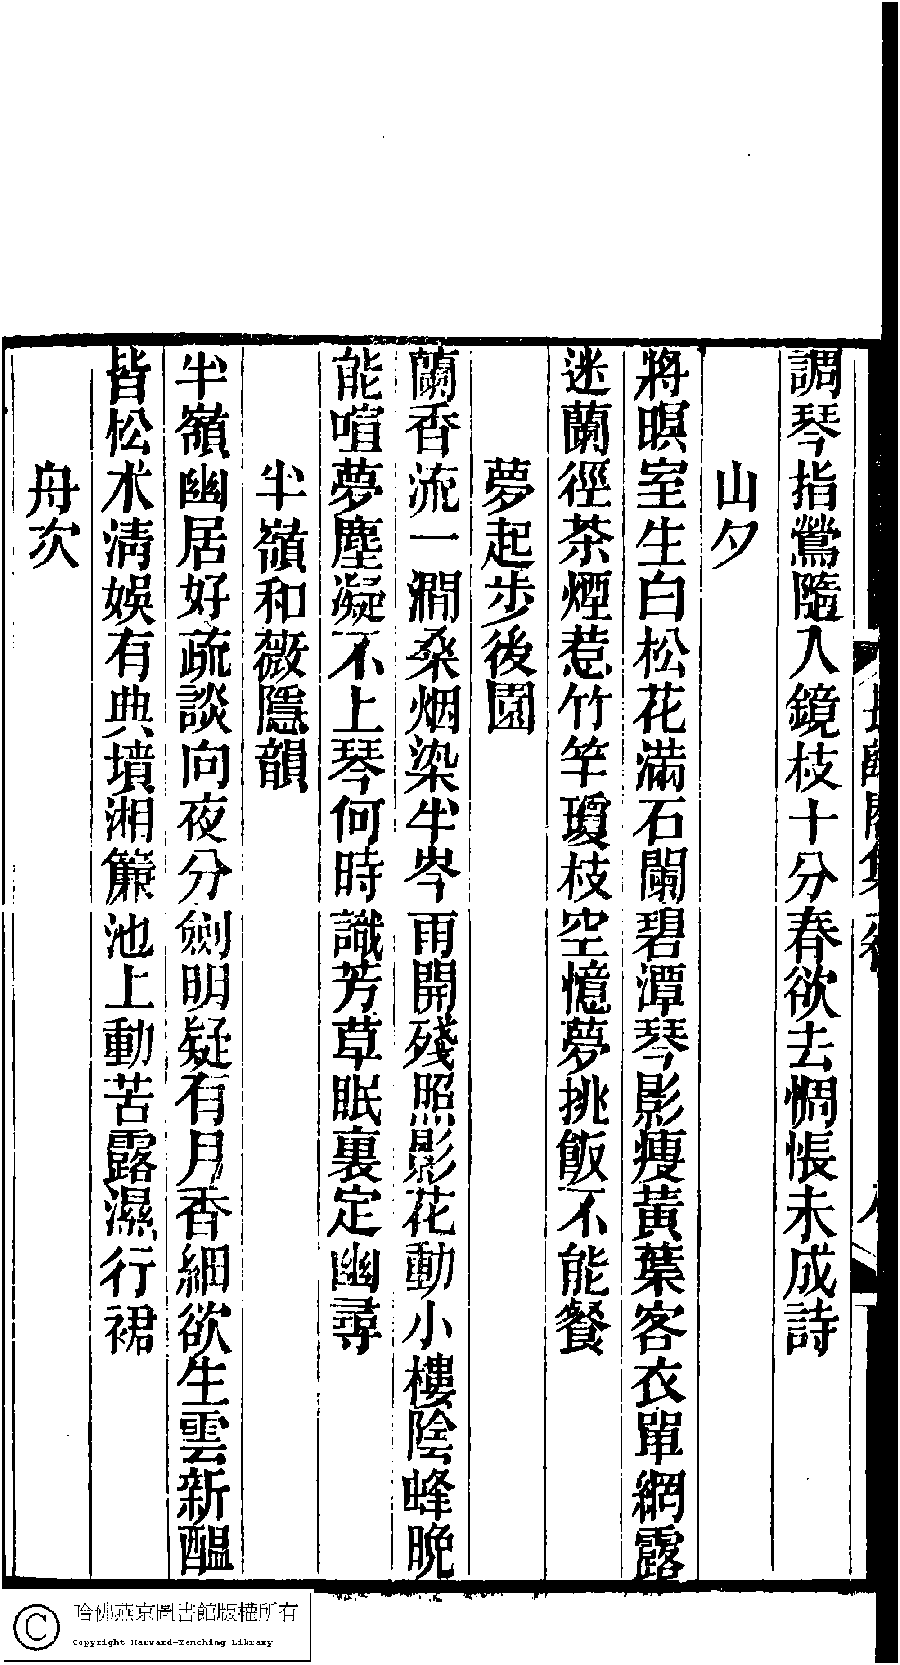 調琴指鶯隨人鏡枝十分春欲去惆悵未成詩
山夕
將暝室生白松花滿石闌碧潭琴影瘦黃葉客衣單網露
迷蘭徑茶煙惹竹竿瓊枝空憶夢挑飯不能餐
夢起步後園
蘭香流一澗桑烟染半岑雨開殘照影花動小樓陰峰晚
能喧夢塵凝不上琴何時識芳草眠裏定幽尋
半嶺和薇隱韻
半嶺幽居好疏談向夜分劍明疑有月香細欲生雲新醞
皆松朮清娛有典墳湘簾池上動苦露濕行裙
舟次
哈佛燕京圖書館版權所有
Copyright Harvard-Yenching Library